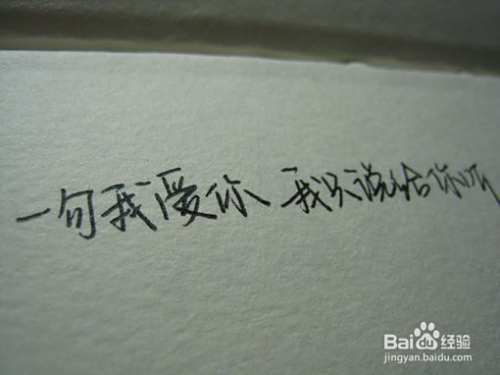 一句我爱你 我只说给你听
Baidu 经验
jingyan.baidu.com